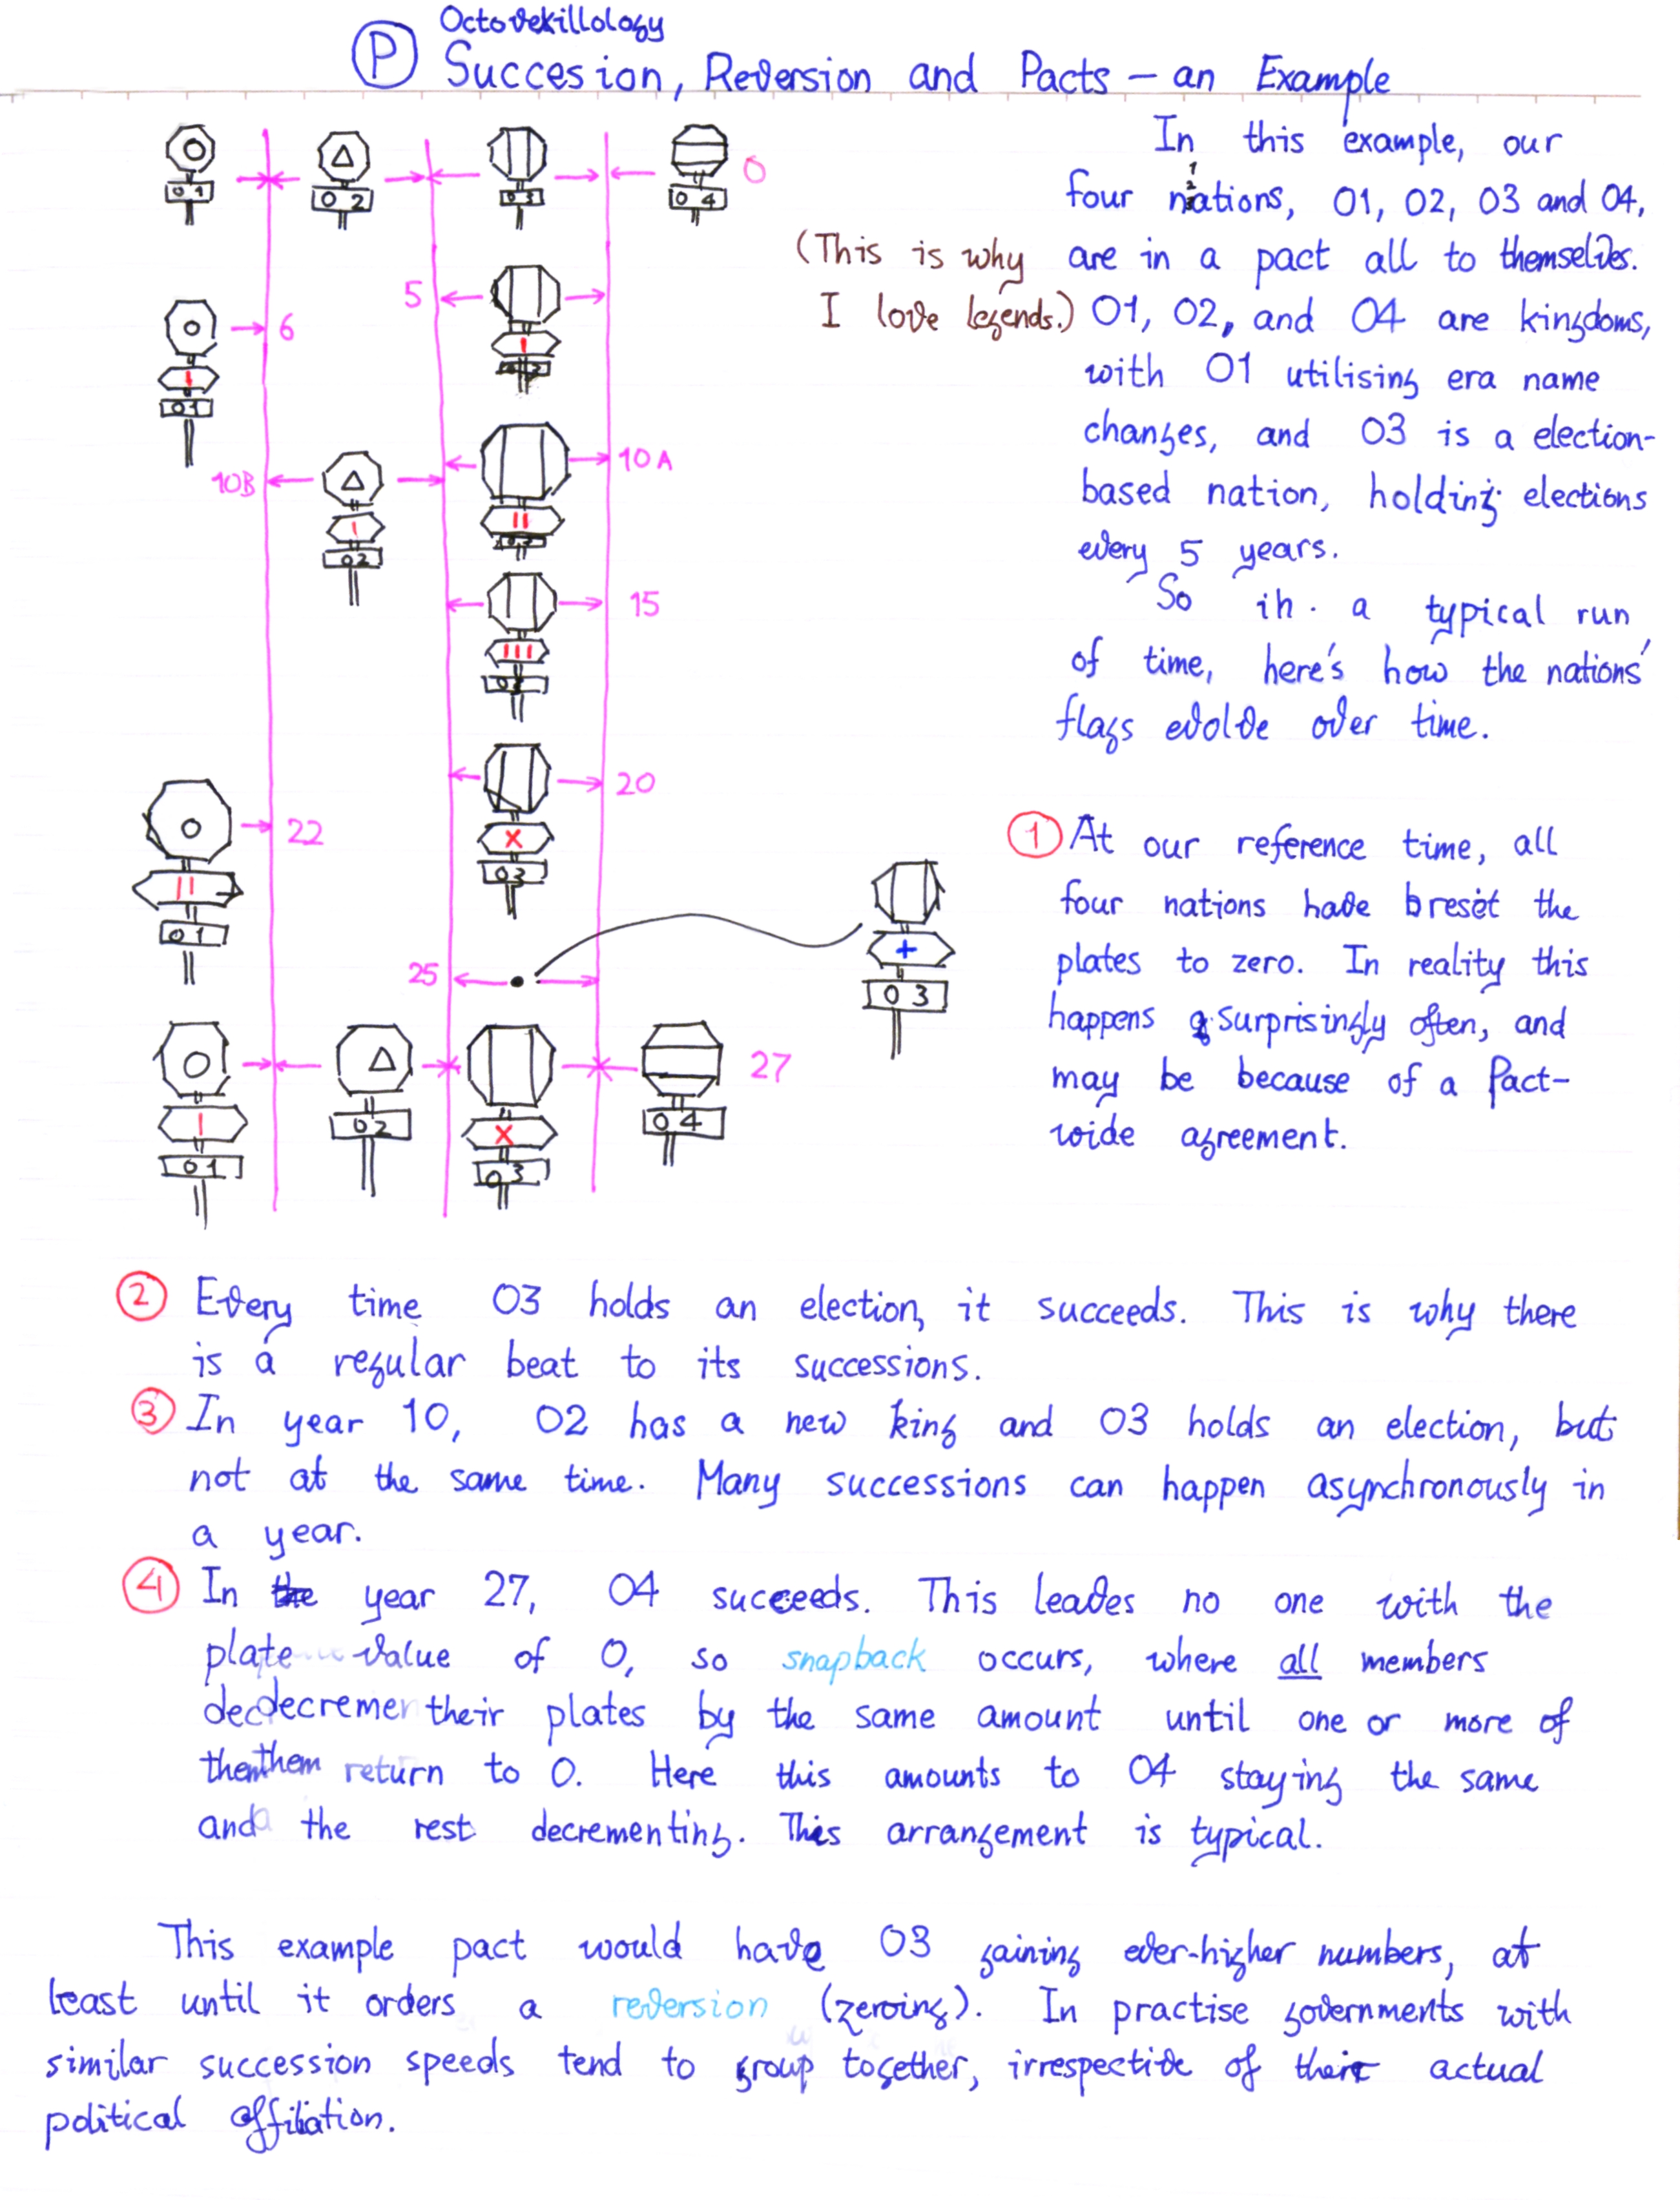 Octovexillology
P Succesion, Reversion and Pacts – an Example
01
02
03
04
0
In this example, our
four nations, 01, 02, 03 and 04,
(This is why
are in a pact all to themselves.
I love legends.)
01, 02, and 04 are kingdoms,
with 01 utilising era name
changes, and 03 is a election-
based nation, holding elections
every 5 years.
So in a typical run
of time, here's how the nations'
flags evolve over time.
5
I
6
I
01
10A
II
10B
I
02
15
III
03
20
X
03
22
II
01
25
+
03
27
I
01
02
X
03
04
1 At our reference time, all
four nations have reset the
plates to zero. In reality this
happens surprisingly often, and
may be because of a Pact-
wide agreement.
2 Every time 03 holds an election, it succeeds. This is why there
is a regular beat to its successions.
3 In year 10, 02 has a new king and 03 holds an election, but
not at the same time. Many successions can happen asynchronously in
a year.
4 In the year 27, 04 succeeds. This leaves no one with the
plate value of 0, so snapback occurs, where all members
decremen their plates by the same amount until one or more of
them return to 0. Here this amounts to 04 staying the same
and the rest decrementing. This arrangement is typical.
This example pact would have 03 gaining ever-higher numbers, at
least until it orders a reversion (zeroing). In practise governments with
similar succession speeds tend to group together, irrespective of their actual
political affiliation.